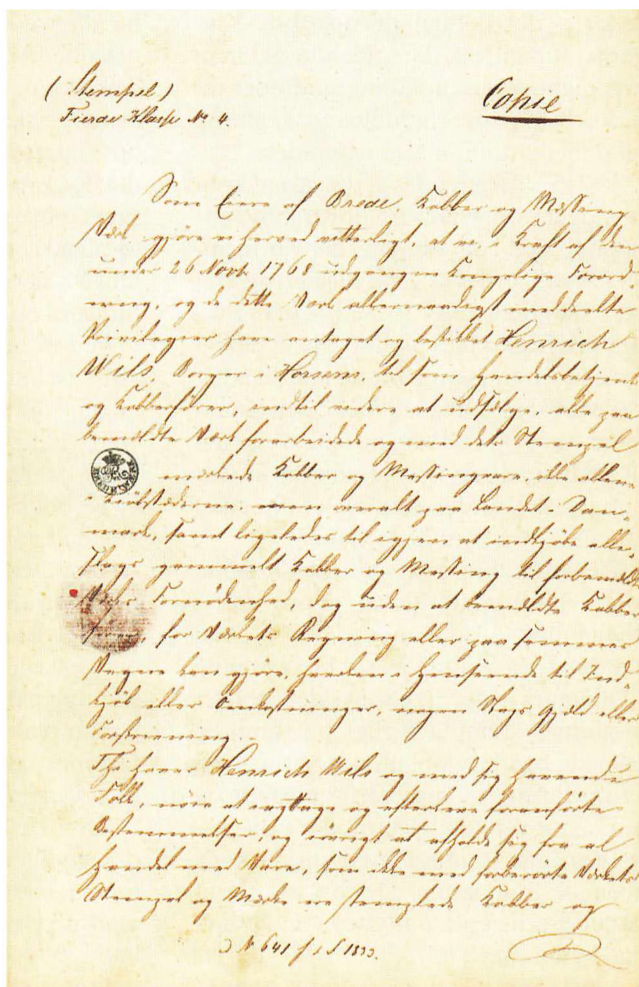 (Stempel)
Fierde Klasse No 4.
Copie
Som Eiere af Brede, Kobber og Messing
Værk gjøre vi herved vitterligt, at vi, i Kraft af den
under 26 Novb. 1768 udgangen Kongelige Forord-
ning, og de dette Værk allernaadigst meddeelte
Privilegier have antaget og bestilt Henrich
Wils, Borger i Horsens, til som Handelsbetjent
og Kobberfører, indtil videre at udsælge, alle paa
bemeldte Værk forarbeidede og med dets Stempel
mærkede Kobber og Messingvare, ikke allene
i Kiøbstæderne, men overalt paa Landet i Dan-
mark, samt ligeledes til igjen at indkjøbe alle
Slags gammelt Kobber og Messing til forbemeldte
Værks Fornødenhed, dog uden at bemeldte Kobber
fører, for Værkets Regning eller paa sammes
Vegne kan gjøre, hverken i Henseende til Ind-
kjøb eller Omkostninger, nogen Slags Gjæld eller
Forskrivning. -
Thi haver Henrich Wils og med sig havende
Folk, nøie at iagttage og efterleve foranførte
Bestemmelser, og iøvrigt at afholde sig fra al
Handel med Vare, som ikke med forberørte Værkets
Stempel og Mærke ere stemplede Kobber og
No 641 1833.